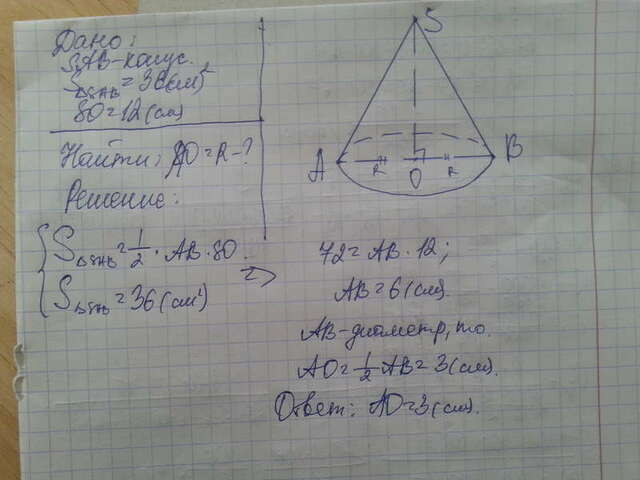 Дано:
SAB-конус.
S△SAB=36(см²)
SO=12(см)
Найти: AO=R-?
Решение:
S△SAB=1/2·AB·SO.
S△SAB=36(см²)
=>
72=AB·12;
AB=6(см).
AB-диаметр, то.
AO=1/2AB=3(см).
Ответ: AO=3(см).
S
A
B
R
O
R